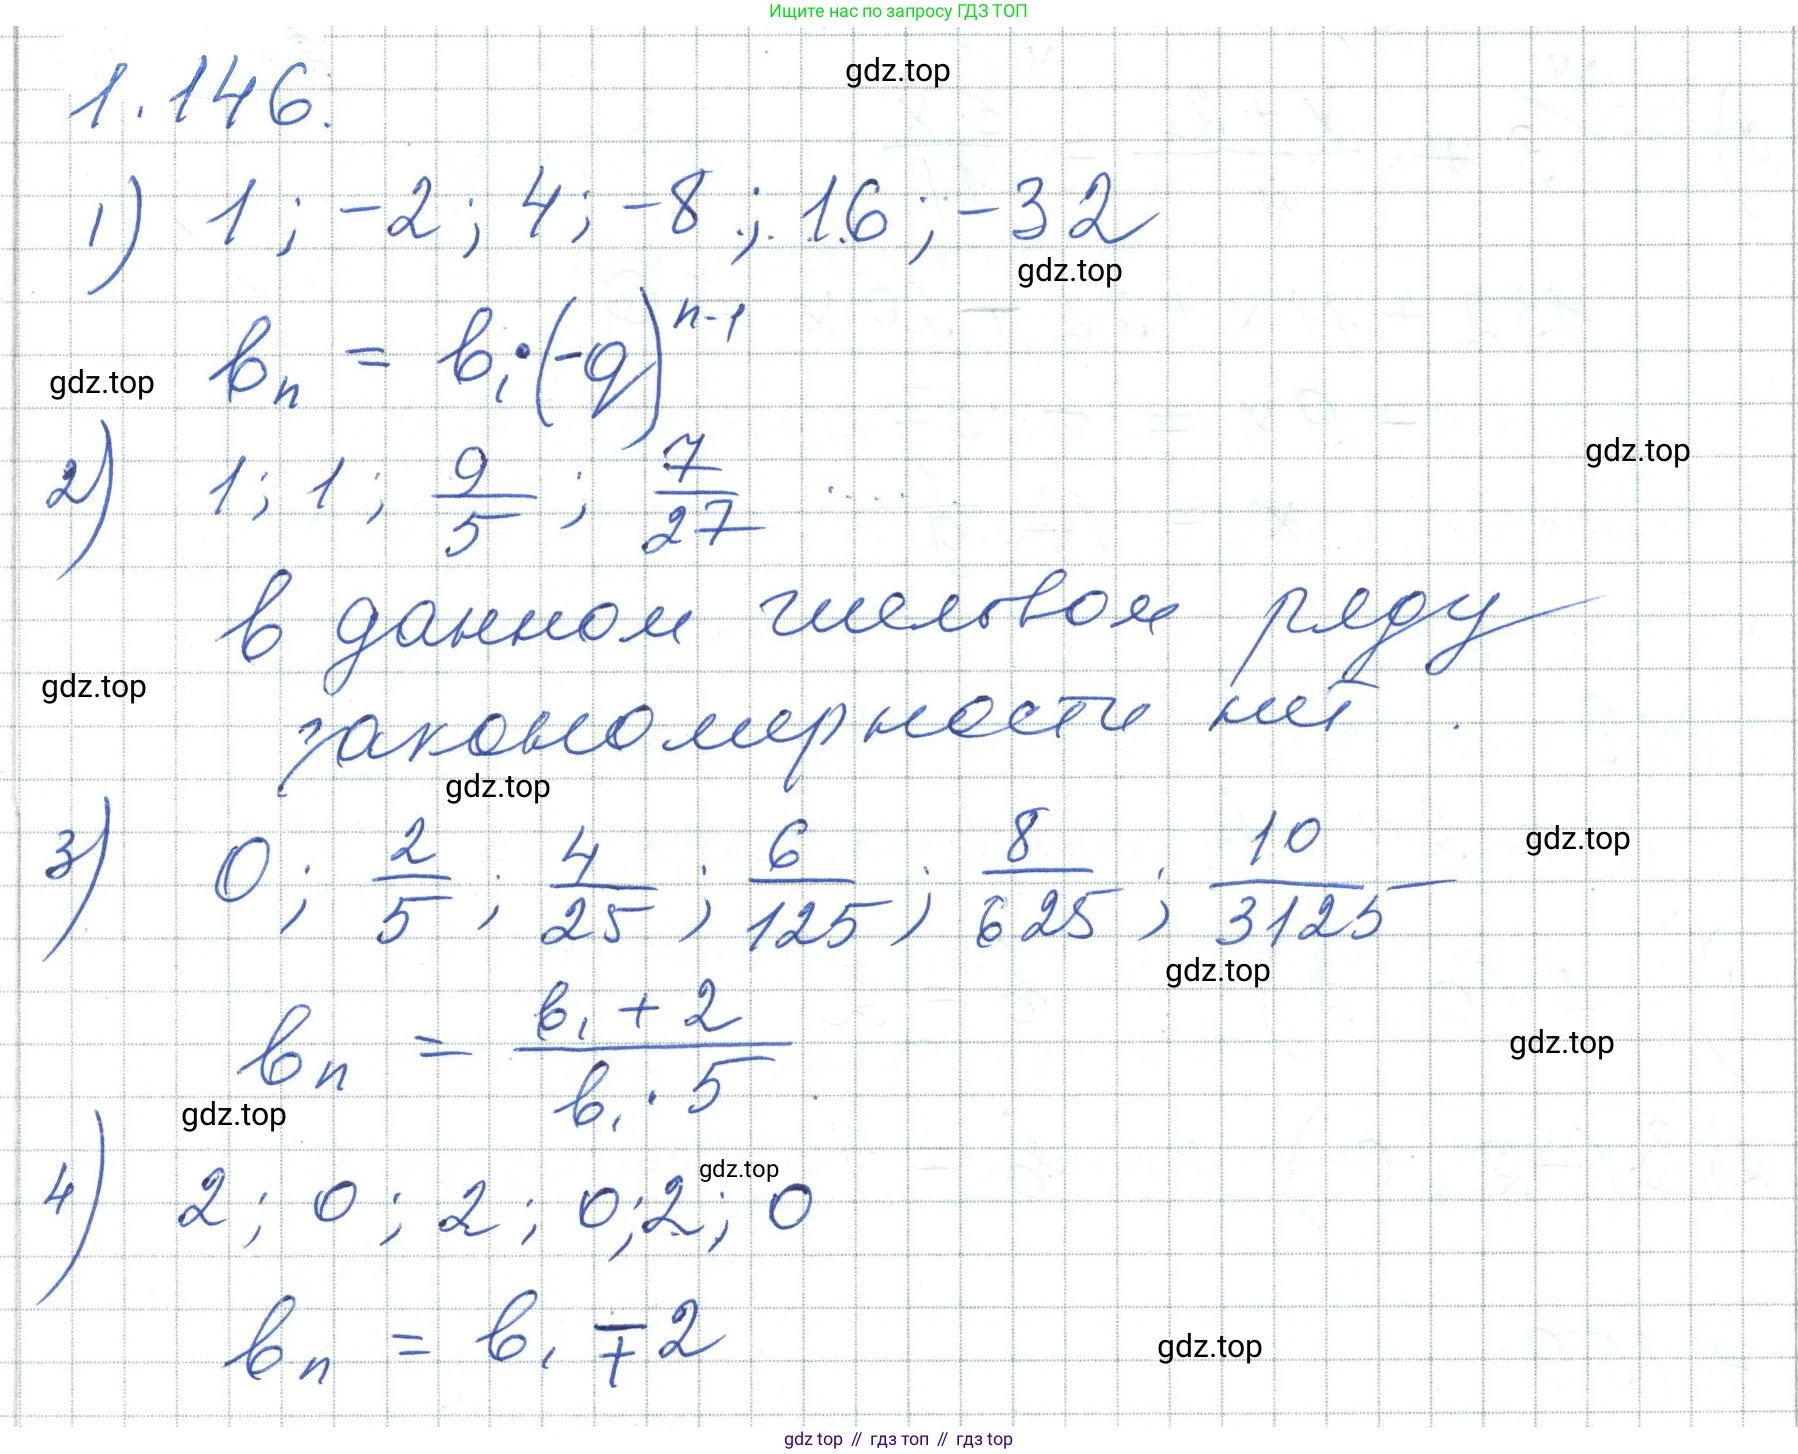 Ищите нас по запросу ГДЗ ТОП
gdz.top
1.146.
1) 1; -2; 4; -8; 16; -32
gdz.top
bₙ = b₁·(-q)ⁿ⁻¹
gdz.top
gdz.top
2) 1; 1; 9/5; 7/27 .....
в данном числовом ряду
gdz.top
закономерности нет.
gdz.top
gdz.top
3) 0; 2/5; 4/25; 6/125; 8/625; 10/3125
gdz.top
bₙ = (b₁ + 2)/(b₁ · 5).
gdz.top
gdz.top
gdz.top
4) 2; 0; 2; 0; 2; 0
bₙ = b₁ ∓ 2
gdz.top
gdz top // гдз топ // гдз top